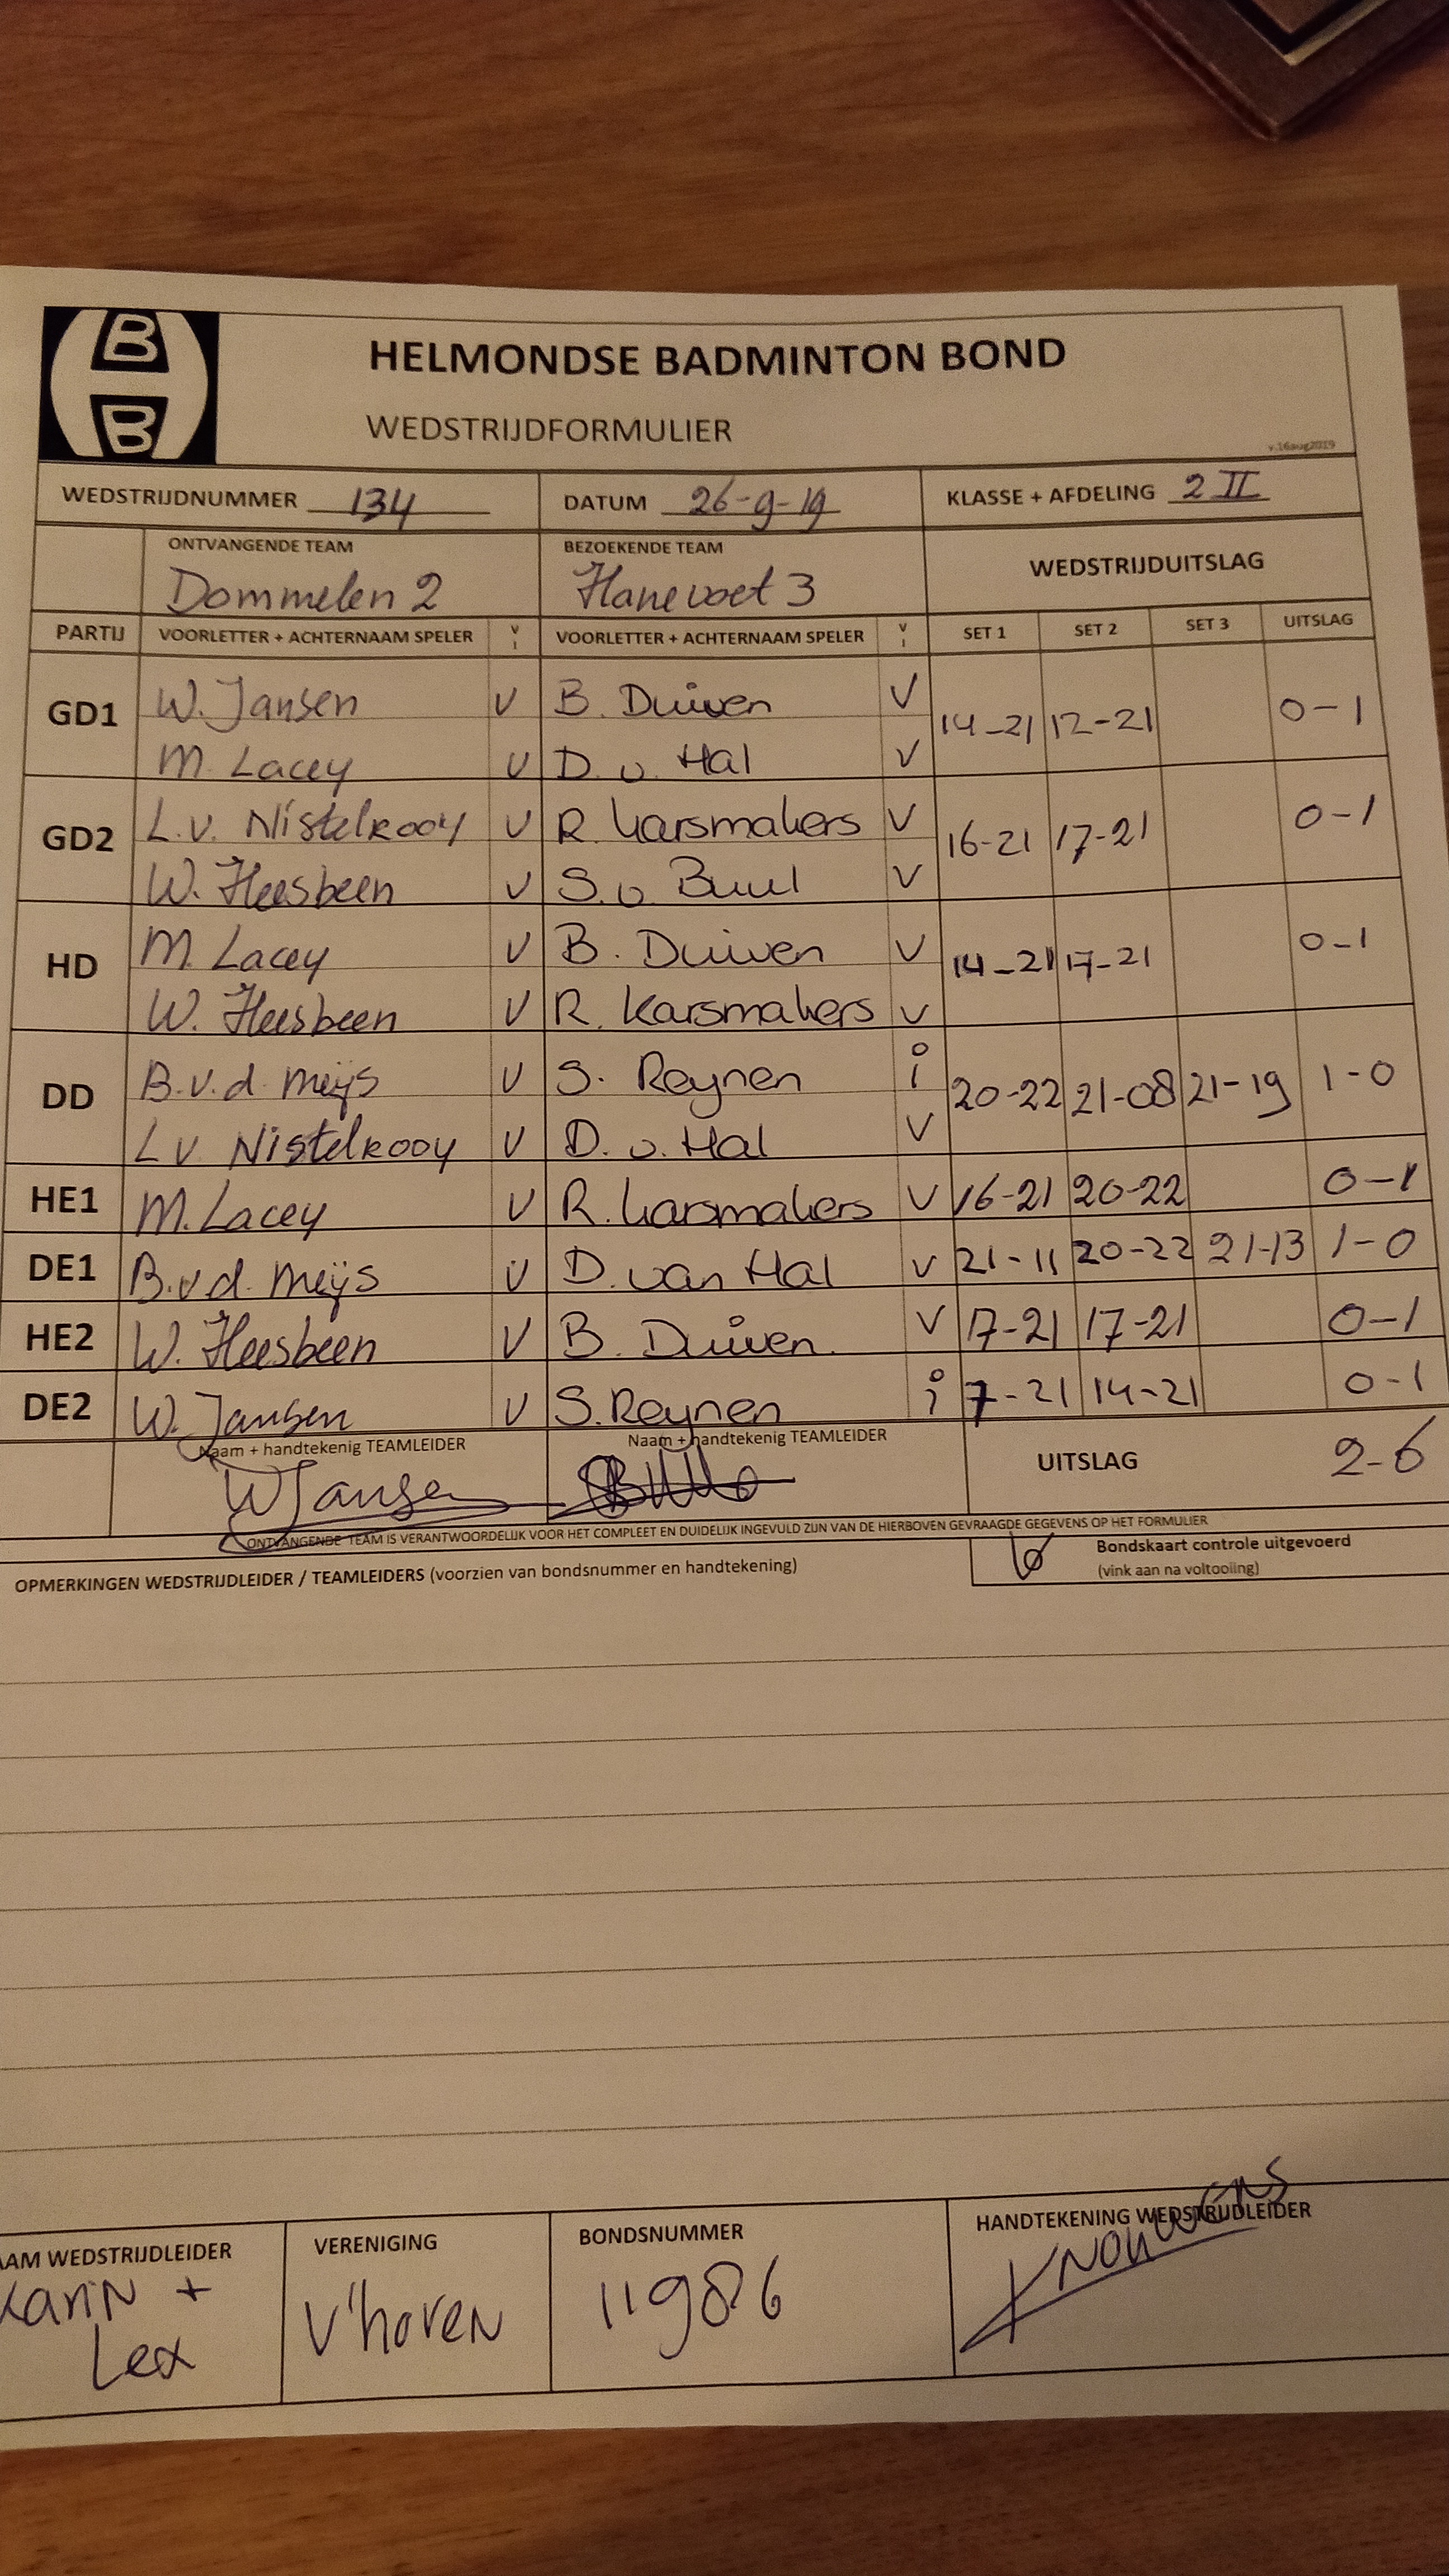 B
B
HELMONDSE BADMINTON BOND
WEDSTRIJDFORMULIER
v.16aug2019
WEDSTRIJDNUMMER 134 DATUM 26-9-19 KLASSE + AFDELING 2 II
ONTVANGENDE TEAM BEZOEKENDE TEAM WEDSTRIJDUITSLAG
Dommelen 2 Hanevoet 3
PARTIJ VOORLETTER + ACHTERNAAM SPELER V I VOORLETTER + ACHTERNAAM SPELER V I SET 1 SET 2 SET 3 UITSLAG
GD1 W. Jansen V B. Duiven V 14-21 12-21 0-1
M. Lacey V D. v. Hal V
GD2 L.v. Nistelrooy V R. Karsmakers V 16-21 17-21 0-1
W. Heesbeen V S. v. Buul V
HD M. Lacey V B. Duiven V 14-21 17-21 0-1
W. Heesbeen V R. Karsmakers V
DD B.v.d. Meijs V S. Reynen i 20-22 21-08 21-19 1-0
L v. Nistelrooy V D. v. Hal V
HE1 M. Lacey V R. Karsmakers V 16-21 20-22 0-1
DE1 B.v.d. Meijs V D. van Hal V 21-11 20-22 21-13 1-0
HE2 W. Heesbeen V B. Duiven V 17-21 17-21 0-1
DE2 W. Jansen V S. Reynen i 7-21 14-21 0-1
Naam + handtekenig TEAMLEIDER Naam + handtekenig TEAMLEIDER UITSLAG 2-6
W Jansen
ONTVANGENDE TEAM IS VERANTWOORDELIJK VOOR HET COMPLEET EN DUIDELIJK INGEVULD ZIJN VAN DE HIERBOVEN GEVRAAGDE GEGEVENS OP HET FORMULIER
OPMERKINGEN WEDSTRIJDLEIDER / TEAMLEIDERS (voorzien van bondsnummer en handtekening) Bondskaart controle uitgevoerd
(vink aan na voltooiing)
AAM WEDSTRIJDLEIDER VERENIGING BONDSNUMMER HANDTEKENING WEDSTRIJDLEIDER
Karin + V'hoven 11986
Lex